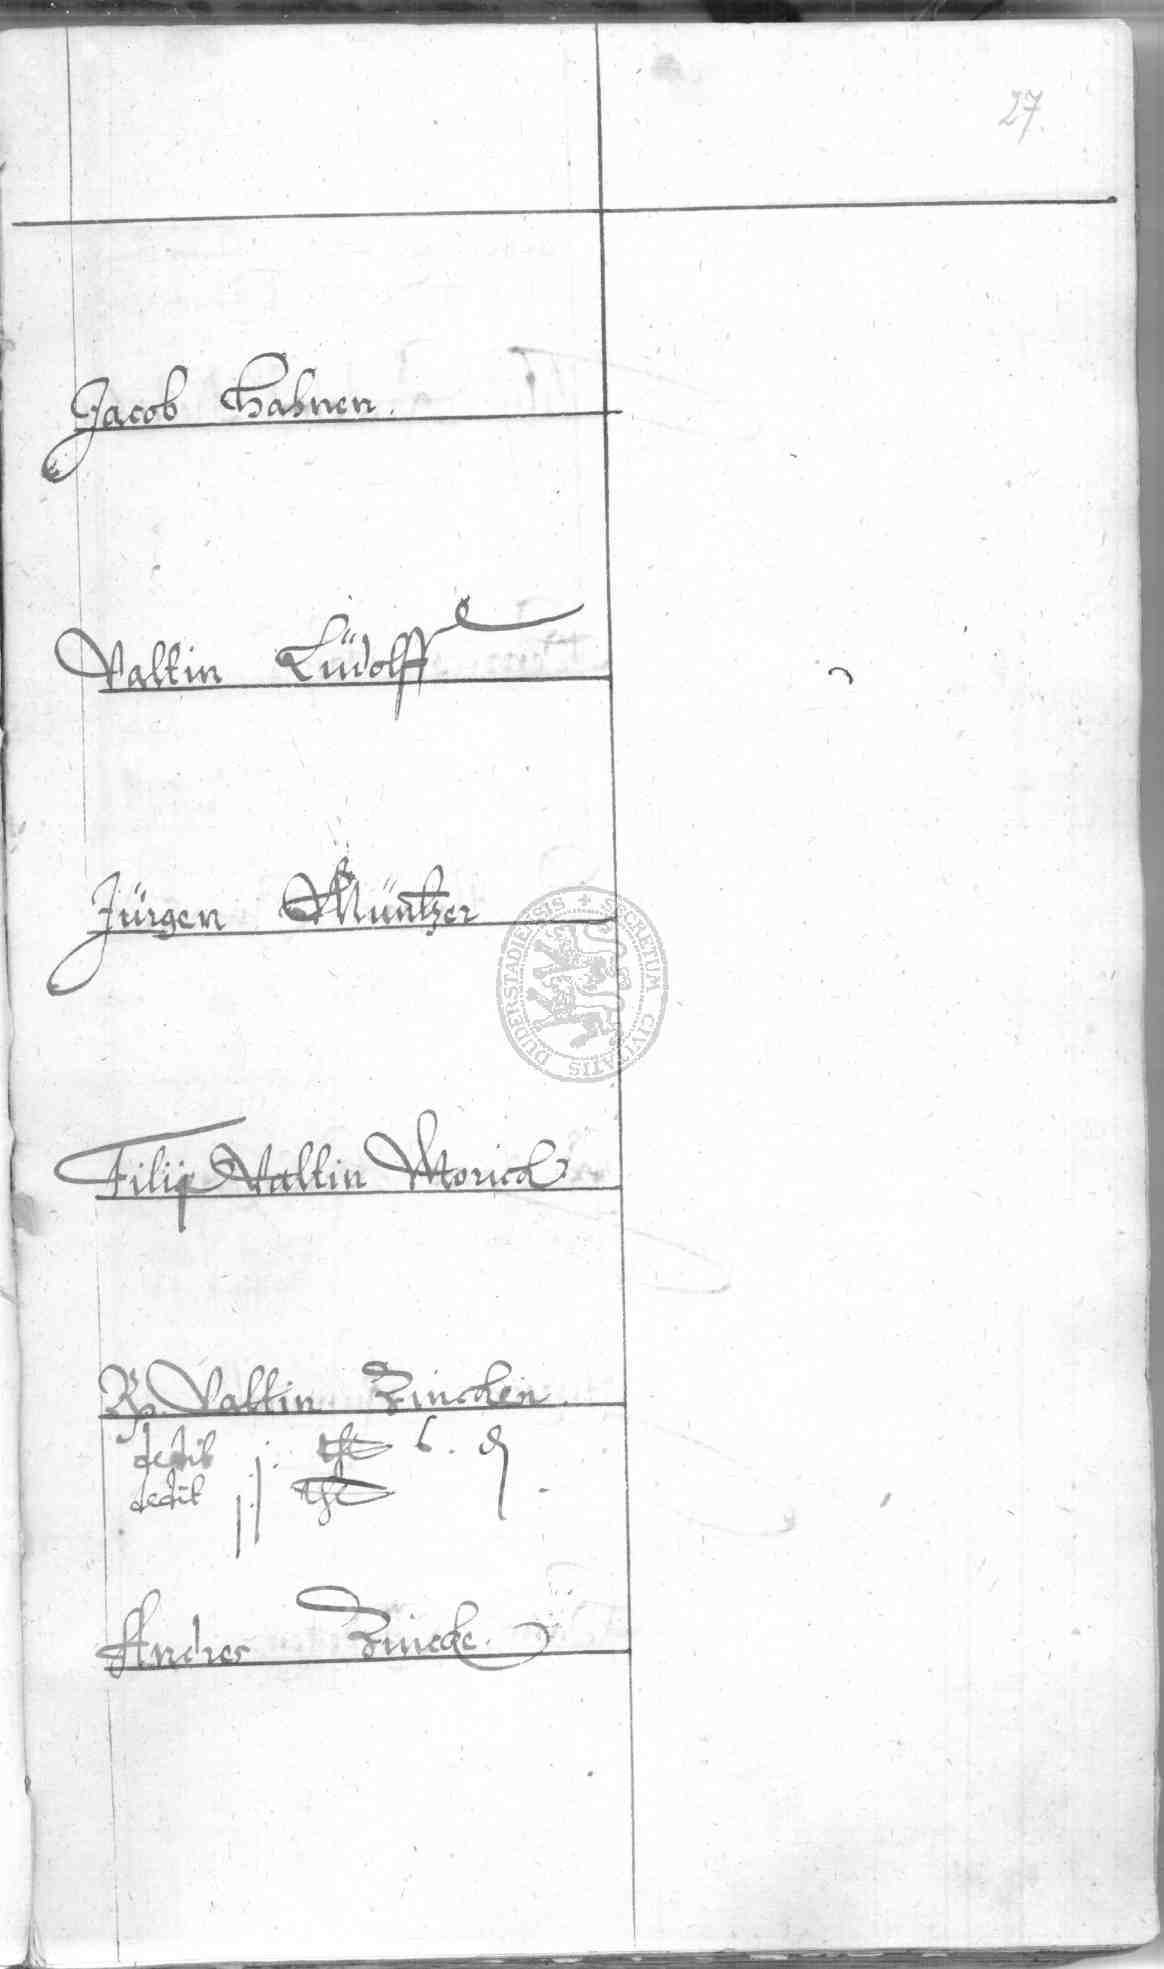 27
Jacob Hahnen.
Valtin Lüdolff
Jürgen Müntzer
DUDERSTADIENSIS + SECRETUM CIVITATIS
Filip Valtin Morick
Valtin Zincken
dedit j 6.
dedit jj
Andres Zincke.